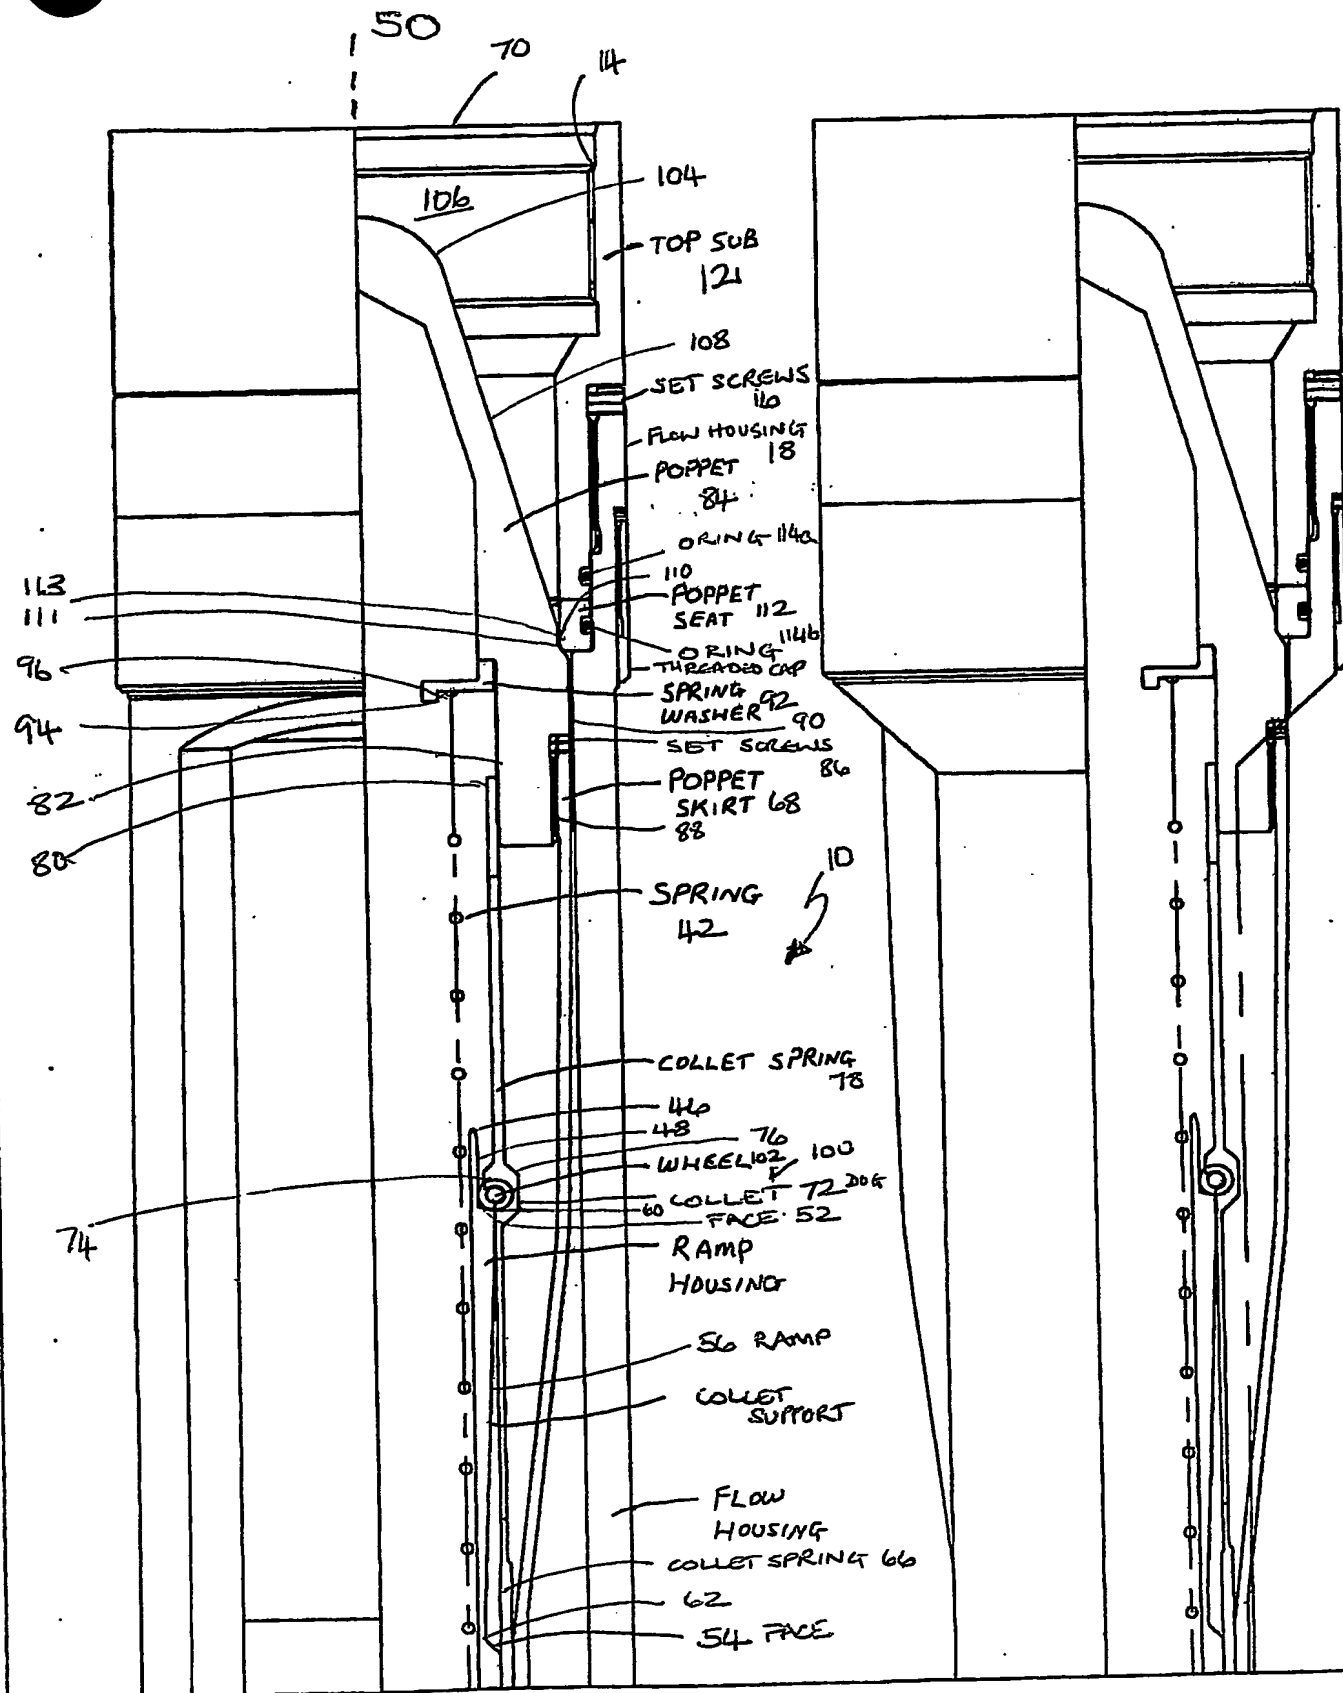 50
70
14
104
106
TOP SUB
12
108
SET SCREWS
16
FLOW HOUSING
18
POPPET
84
O RING 114a
113
110
111
POPPET
SEAT 112
O RING 114b
96
THREADED CAP
SPRING
WASHER 92
94
90
SET SCREWS
86
82
POPPET
SKIRT 68
88
80
10
SPRING
42
COLLET SPRING
78
46
48
76
WHEEL 102
100
COLLET 72 DOG
60
FACE 52
74
RAMP
HOUSING
56 RAMP
COLLET
SUPPORT
FLOW
HOUSING
COLLET SPRING 66
62
54 FACE